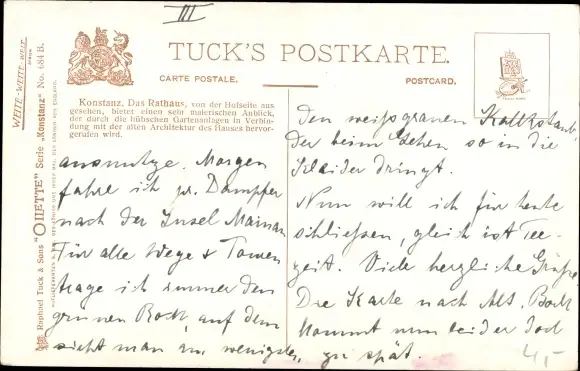 III
TUCK'S POSTKARTE.
CARTE POSTALE.
POSTCARD.
WEITE-WEITE-WELT
Raphael Tuck & Sons "OILETTE" Serie „Konstanz" No. 684 B.
Konstanz. Das Rathaus, von der Hofseite aus
gesehen, bietet einen sehr malerischen Anblick,
der durch die hübschen Gartenanlagen in Verbin-
dung mit der alten Architektur des Hauses hervor-
gerufen wird.
ausnutze. Morgen
fahre ich pr. Dampfer
nach der Insel Mainau.
Für alle Wege & Touren
trage ich immer den
grünen Rock, auf dem
sieht man am wenigsten
den weißgrauen Kalkstaub,
der beim Gehen so in die
Kleider dringt.
Nun will ich für heute
schließen, gleich ist Tee-
zeit. Viele herzliche Grüße.
Die Karte nach Alt. Bock
kommt nun leider doch
zu spät.
4,-